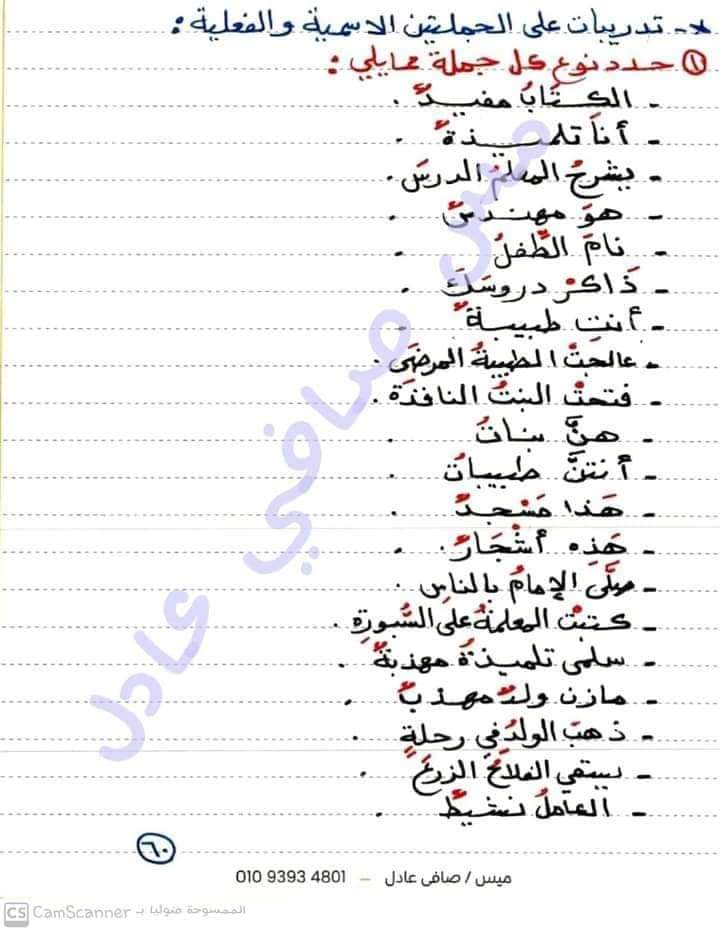 *- تدريبات على الجملتين الاسمية والفعلية:
① حدد نوع كل جملة مما يلي:
- الكتابُ مفيدٌ .
- أنا تلميذةٌ .
- يشرحُ المعلمُ الدرسَ .
- هوَ مهندسٌ .
- نامَ الطَّفلُ .
- ذَاكرْ دروسَكَ .
- أنت طبيبةٌ .
- عالجَتْ الطبيبةُ المرضَى .
- فتحتْ البنتُ النافذةَ .
- هنَّ بناتٌ .
- أنتنَّ طبيباتٌ .
- هَذا مَسْجدٌ .
- هَذِه أشْجَارٌ .
- صلَّى الإمامُ بالناسِ .
- كتبتْ المعلمةُ على السَّبورةِ .
- سلمى تلميذةٌ مهذبةٌ .
- مازن ولدٌ مهذبٌ .
- ذهبَ الولدُ في رحلةٍ .
- يسقي الفلاحُ الزرعَ .
- العاملُ نشيطٌ .
٦٠
ميس / صافى عادل – 010 9393 4801
ميس صافي عادل
CS CamScanner الممسوحة ضوئيا بـ